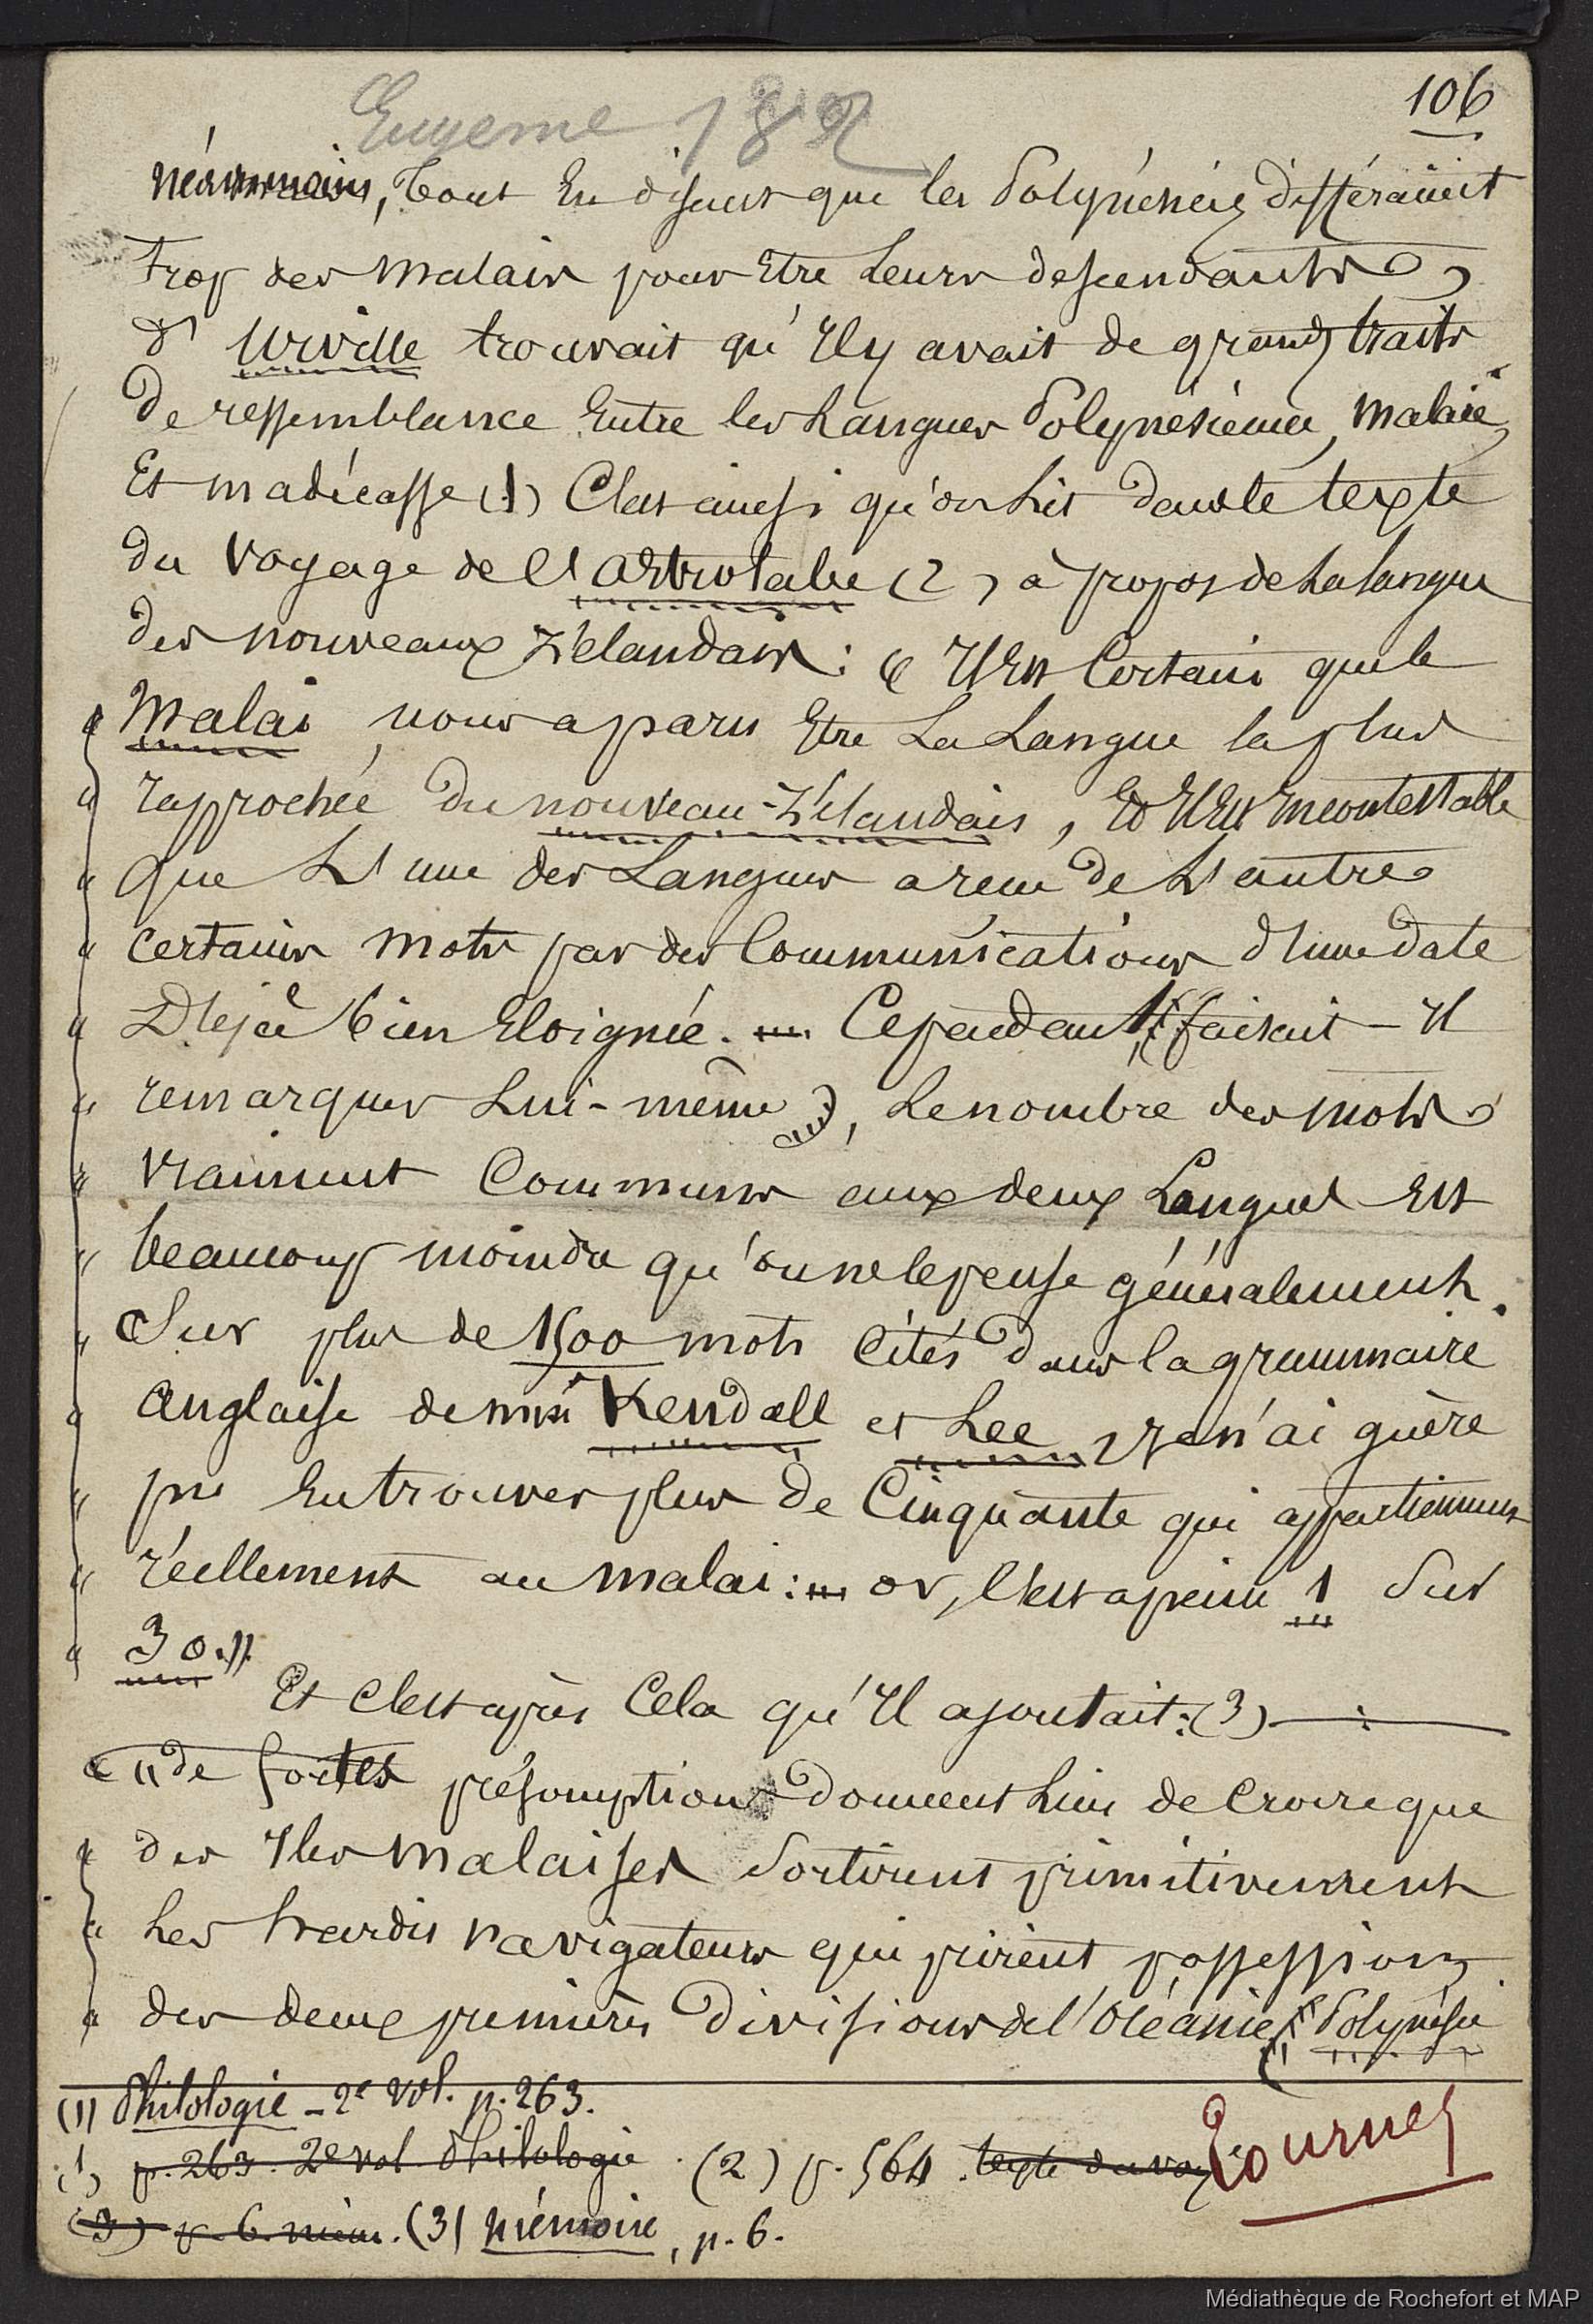 106
Eugenie 1882
Néanmoins, Tout En disant que les Polynésiens différaient
trop des Malais pour Etre Leurs descendants,
d'Urville trouvait qu'Il y avait de grands traits
De ressemblance Entre les Langues Polynésienne, Malaie,
Et madécasse (1) C'est ainsi qu'on Lit dans le texte
du Voyage de l'Astrolabe (2) à propos de La langue
des nouveaux Zélandais : « Il Est Certain que le
" Malai nous a paru Etre La Langue la plus
" rapprochée du nouveau-Zélandais, Et Il Est Incontestable
" que L'une des Langues a recu de L'autre
" certains mots par des Communications d'une date
" Déjà bien Eloignée. — Cependant, (faisait-Il
" remarquer Lui-même), Le nombre des mots
" vraiment Communs aux deux Langues Est
" beaucoup moindre qu'on ne le pense généralement.
" Sur plus de 1500 mots Cités dans la grammaire
" anglaise de mrs Kendall et Lee, Je n'ai guère
" pu En trouver plus de Cinquante qui appartiennent
" réellement au malai : — or, C'est a peine 1 Sur
" 30. »
Et C'est après Cela qu'Il ajoutait : (3) — :
« de fortes présomptions donnent Lieu de Croire que
" des Iles Malaises Sortirent primitivement
" Les hardis navigateurs qui prirent possession
" des deux premières Divisions de l'Océanie (Polynésie
(1) Philologie - 2e vol. p. 263.
(1) p. 263. 2e vol. Philologie . (2) p. 564 . texte du voy.
Tournez
(3) p. 6. mém. (3) Mémoire, p. 6.
Médiathèque de Rochefort et MAP